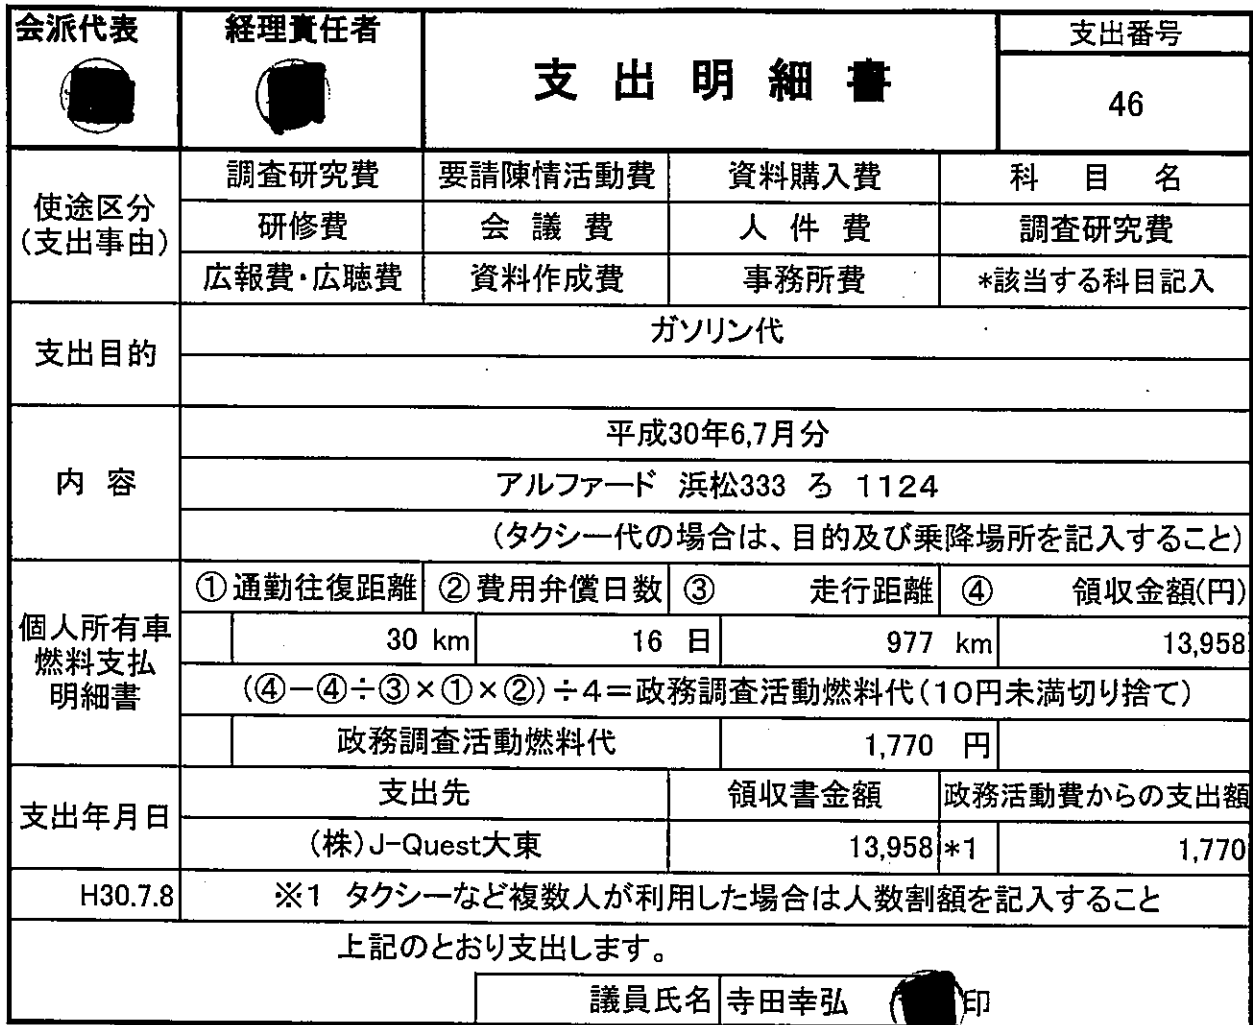 会派代表 経理責任者 支出明細書 支出番号
46
使途区分
(支出事由)
調査研究費 要請陳情活動費 資料購入費 科目名
研修費 会議費 人件費 調査研究費
広報費・広聴費 資料作成費 事務所費 *該当する科目記入
支出目的
ガソリン代
内容
平成30年6,7月分
アルファード 浜松333 ろ 1124
(タクシー代の場合は、目的及び乗降場所を記入すること)
個人所有車
燃料支払
明細書
①通勤往復距離 ②費用弁償日数 ③ 走行距離 ④ 領収金額(円)
30 km 16 日 977 km 13,958
(④-④÷③×①×②)÷4=政務調査活動燃料代(10円未満切り捨て)
政務調査活動燃料代 1,770 円
支出年月日
支出先 領収書金額 政務活動費からの支出額
(株)J-Quest大東 13,958 *1 1,770
H30.7.8 ※1 タクシーなど複数人が利用した場合は人数割額を記入すること
上記のとおり支出します。
議員氏名 寺田幸弘 印